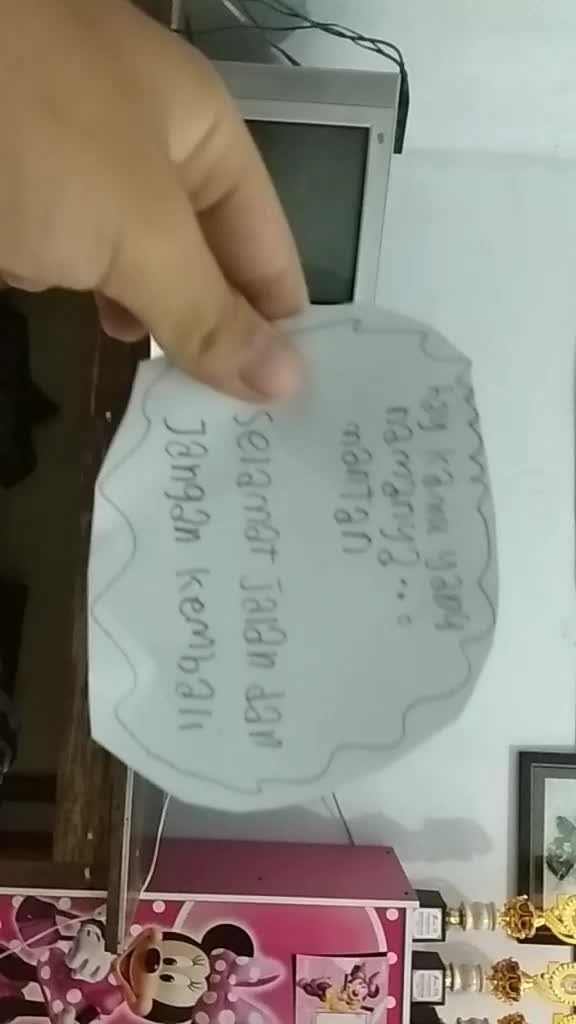 Hay kamu yang
namanya...
mantan
selamat Jalan dan
Jangan kembali